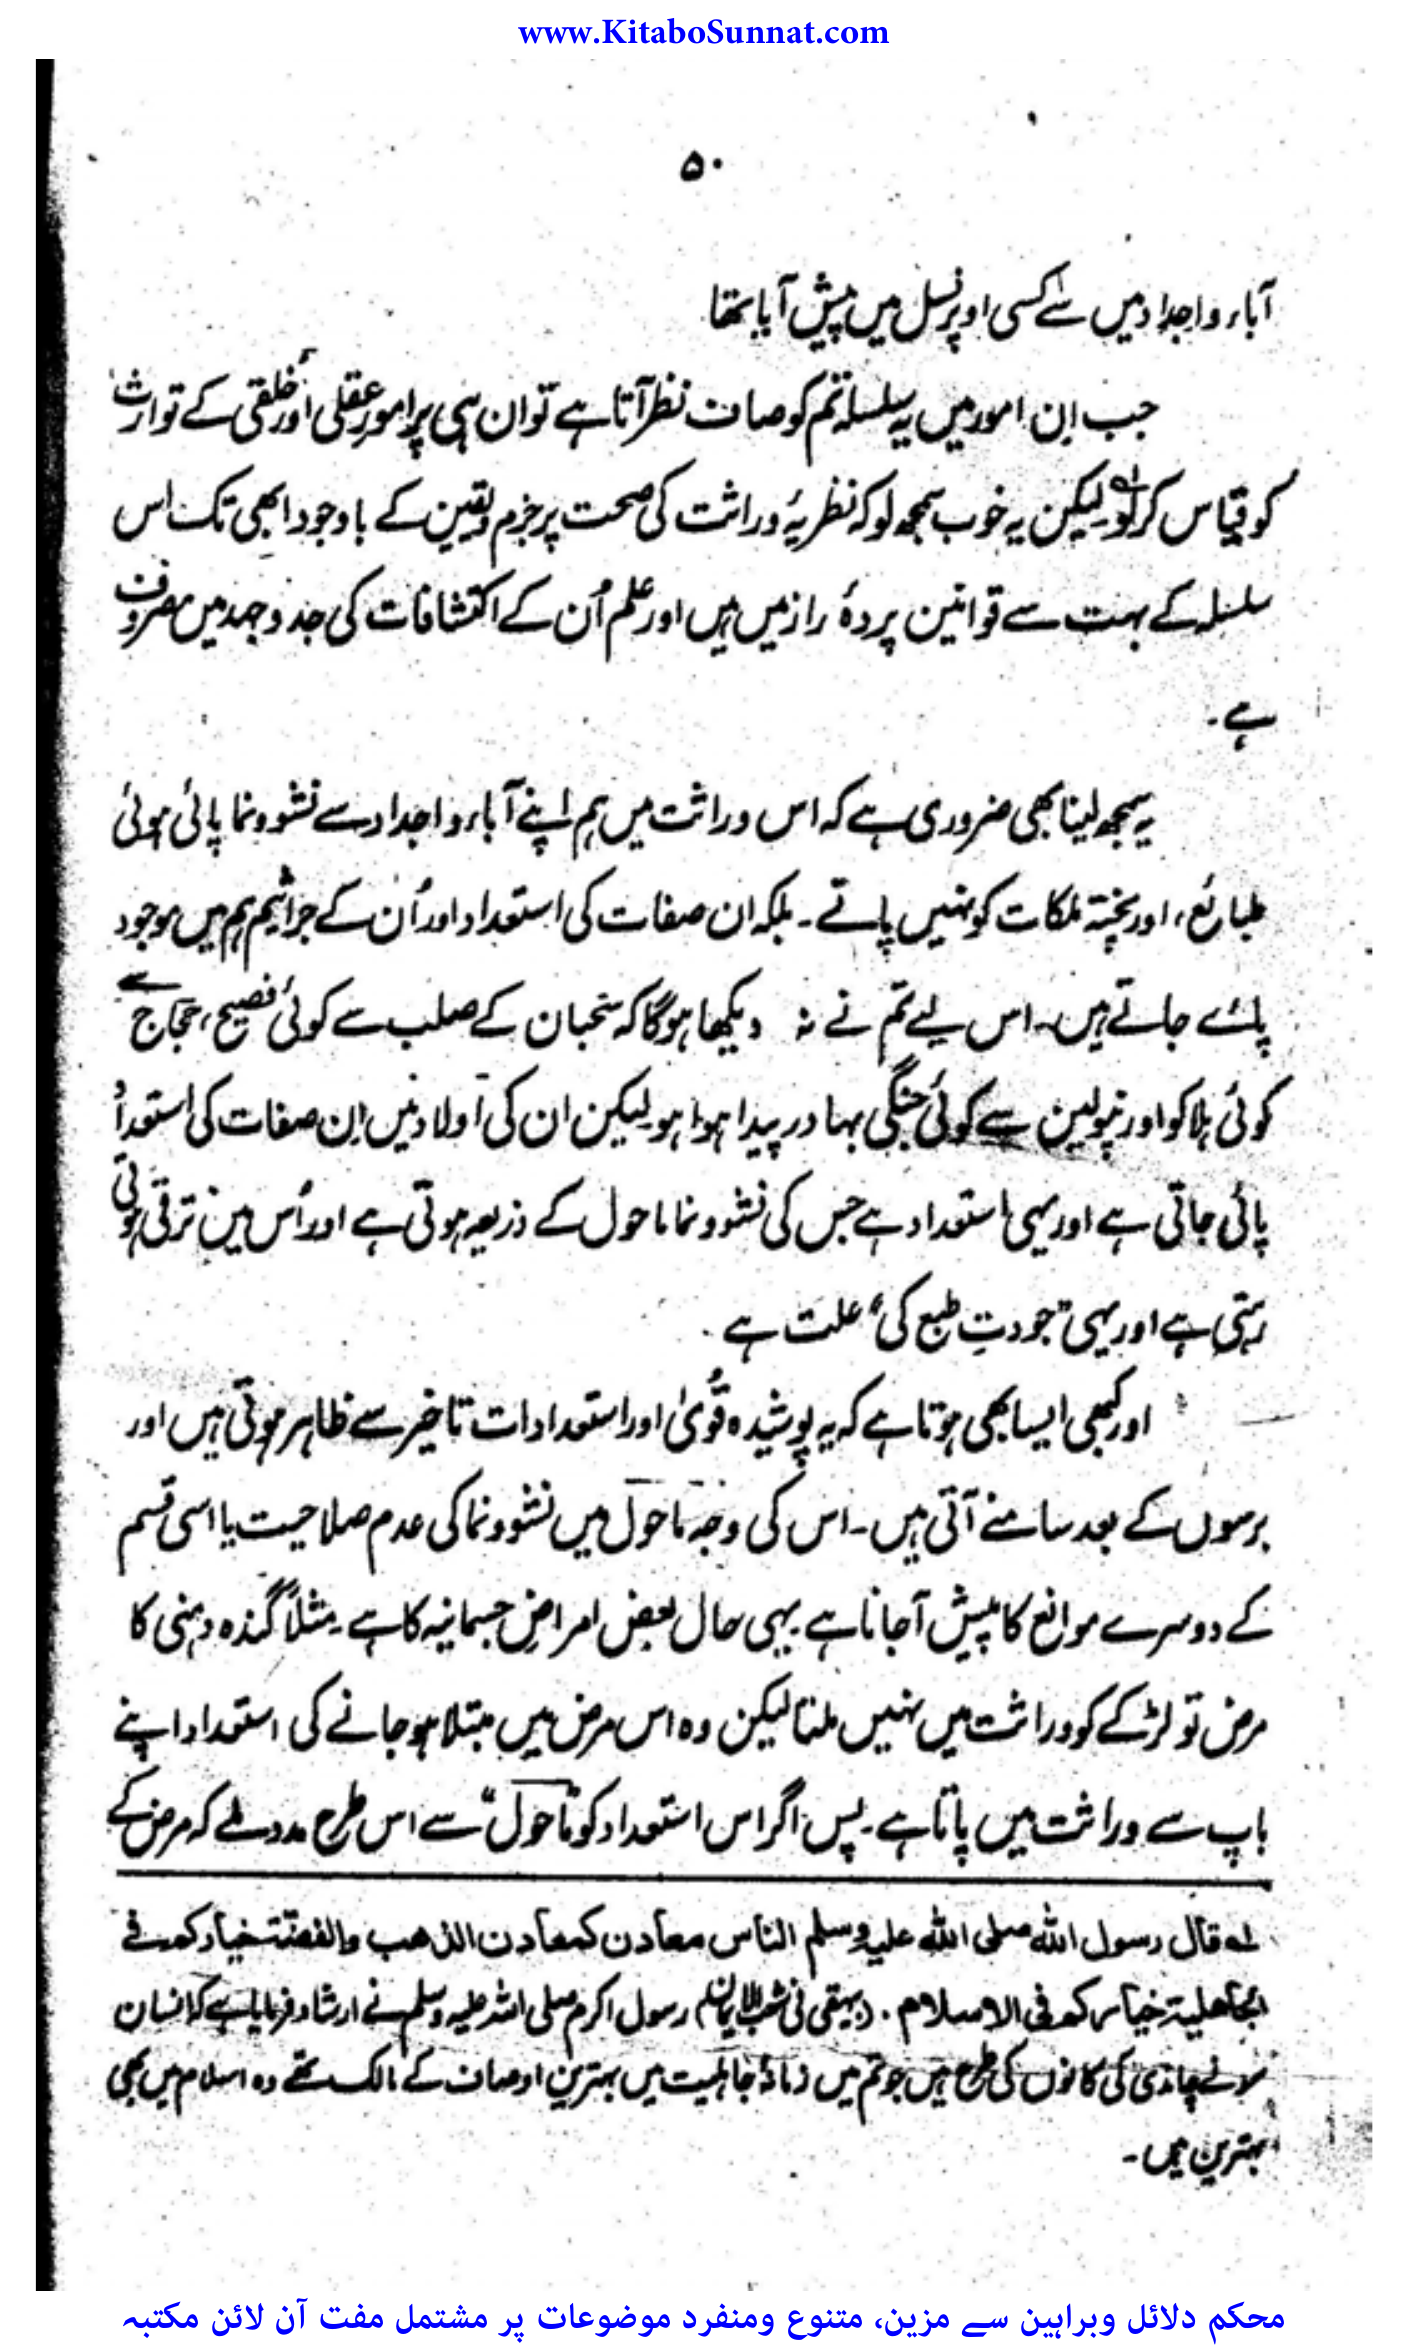 www.KitaboSunnat.com
۵۰
آباء و اجداد میں سے کسی اوپر نسل میں پیش آیا تھا
جب اِن امور میں یہ سلسلہ تم کو صاف نظر آتا ہے تو ان ہی پر امورِ عقلی اور خُلقی کے توارث
کو قیاس کر لو لہ لیکن یہ خوب سمجھ لو کہ نظریۂ وراثت کی صحت پر جزم و یقین کے باوجود ابھی تک اس
سلسلہ کے بہت سے قوانین پردۂ راز میں ہیں اور علم اُن کے اکتشافات کی جد و جہد میں مصروف
ہے۔
یہ سمجھ لینا بھی ضروری ہے کہ اس وراثت میں ہم اپنے آباء و اجداد سے نشو و نما پائی ہوئی
طبائع، اور پختہ ملکات کو نہیں پاتے۔ بلکہ ان صفات کی استعداد اور اُن کے جراثیم ہم میں موجود
پائے جاتے ہیں۔ اس لیے تم نے نہ دیکھا ہوگا کہ سحبان کے صلب سے کوئی فصیح، حجاج سے
کوئی ہلاکو اور نپولین سے کوئی جنگی بہادر پیدا ہوا ہو لیکن ان کی اولاد میں اِن صفات کی استعداد
پائی جاتی ہے اور یہی استعداد ہے جس کی نشو و نما ماحول کے ذریعہ ہوتی ہے اور اُس میں ترقی ہوتی
رہتی ہے اور یہی "جودتِ طبع کی" علت ہے۔
اور کبھی ایسا بھی ہوتا ہے کہ یہ پوشیدہ قُویٰ اور استعدادات تاخیر سے ظاہر ہوتی ہیں اور
برسوں کے بعد سامنے آتی ہیں۔ اس کی وجہ ماحول میں نشو و نما کی عدم صلاحیت یا اسی قسم
کے دوسرے موانع کا پیش آ جانا ہے یہی حال بعض امراضِ جسمانیہ کا ہے۔ مثلاً گندہ دہنی کا
مرض تو لڑکے کو وراثت میں نہیں ملتا لیکن وہ اس مرض میں مبتلا ہو جانے کی استعداد اپنے
باپ سے وراثت میں پاتا ہے۔ پس اگر اس استعداد کو "ماحول" سے اس طرح مدد ملے کہ مرض کے
لہ قال رسول اللہ صلی اللہ علیہ وسلم الناس معادن کمعادن الذھب والفضۃ خیارکم فی
الجاھلیۃ خیارکم فی الاسلام۔ (بیہقی فی شعب الایمان) رسول اکرم صلی اللہ علیہ وسلم نے ارشاد فرمایا ہے کہ انسان
سونے چاندی کی کانوں کی طرح ہیں جو تم میں زمانۂ جاہلیت میں بہترین اوصاف کے مالک تھے وہ اسلام میں بھی
بہترین ہیں۔
محکم دلائل وبراہین سے مزین، متنوع ومنفرد موضوعات پر مشتمل مفت آن لائن مکتبہ